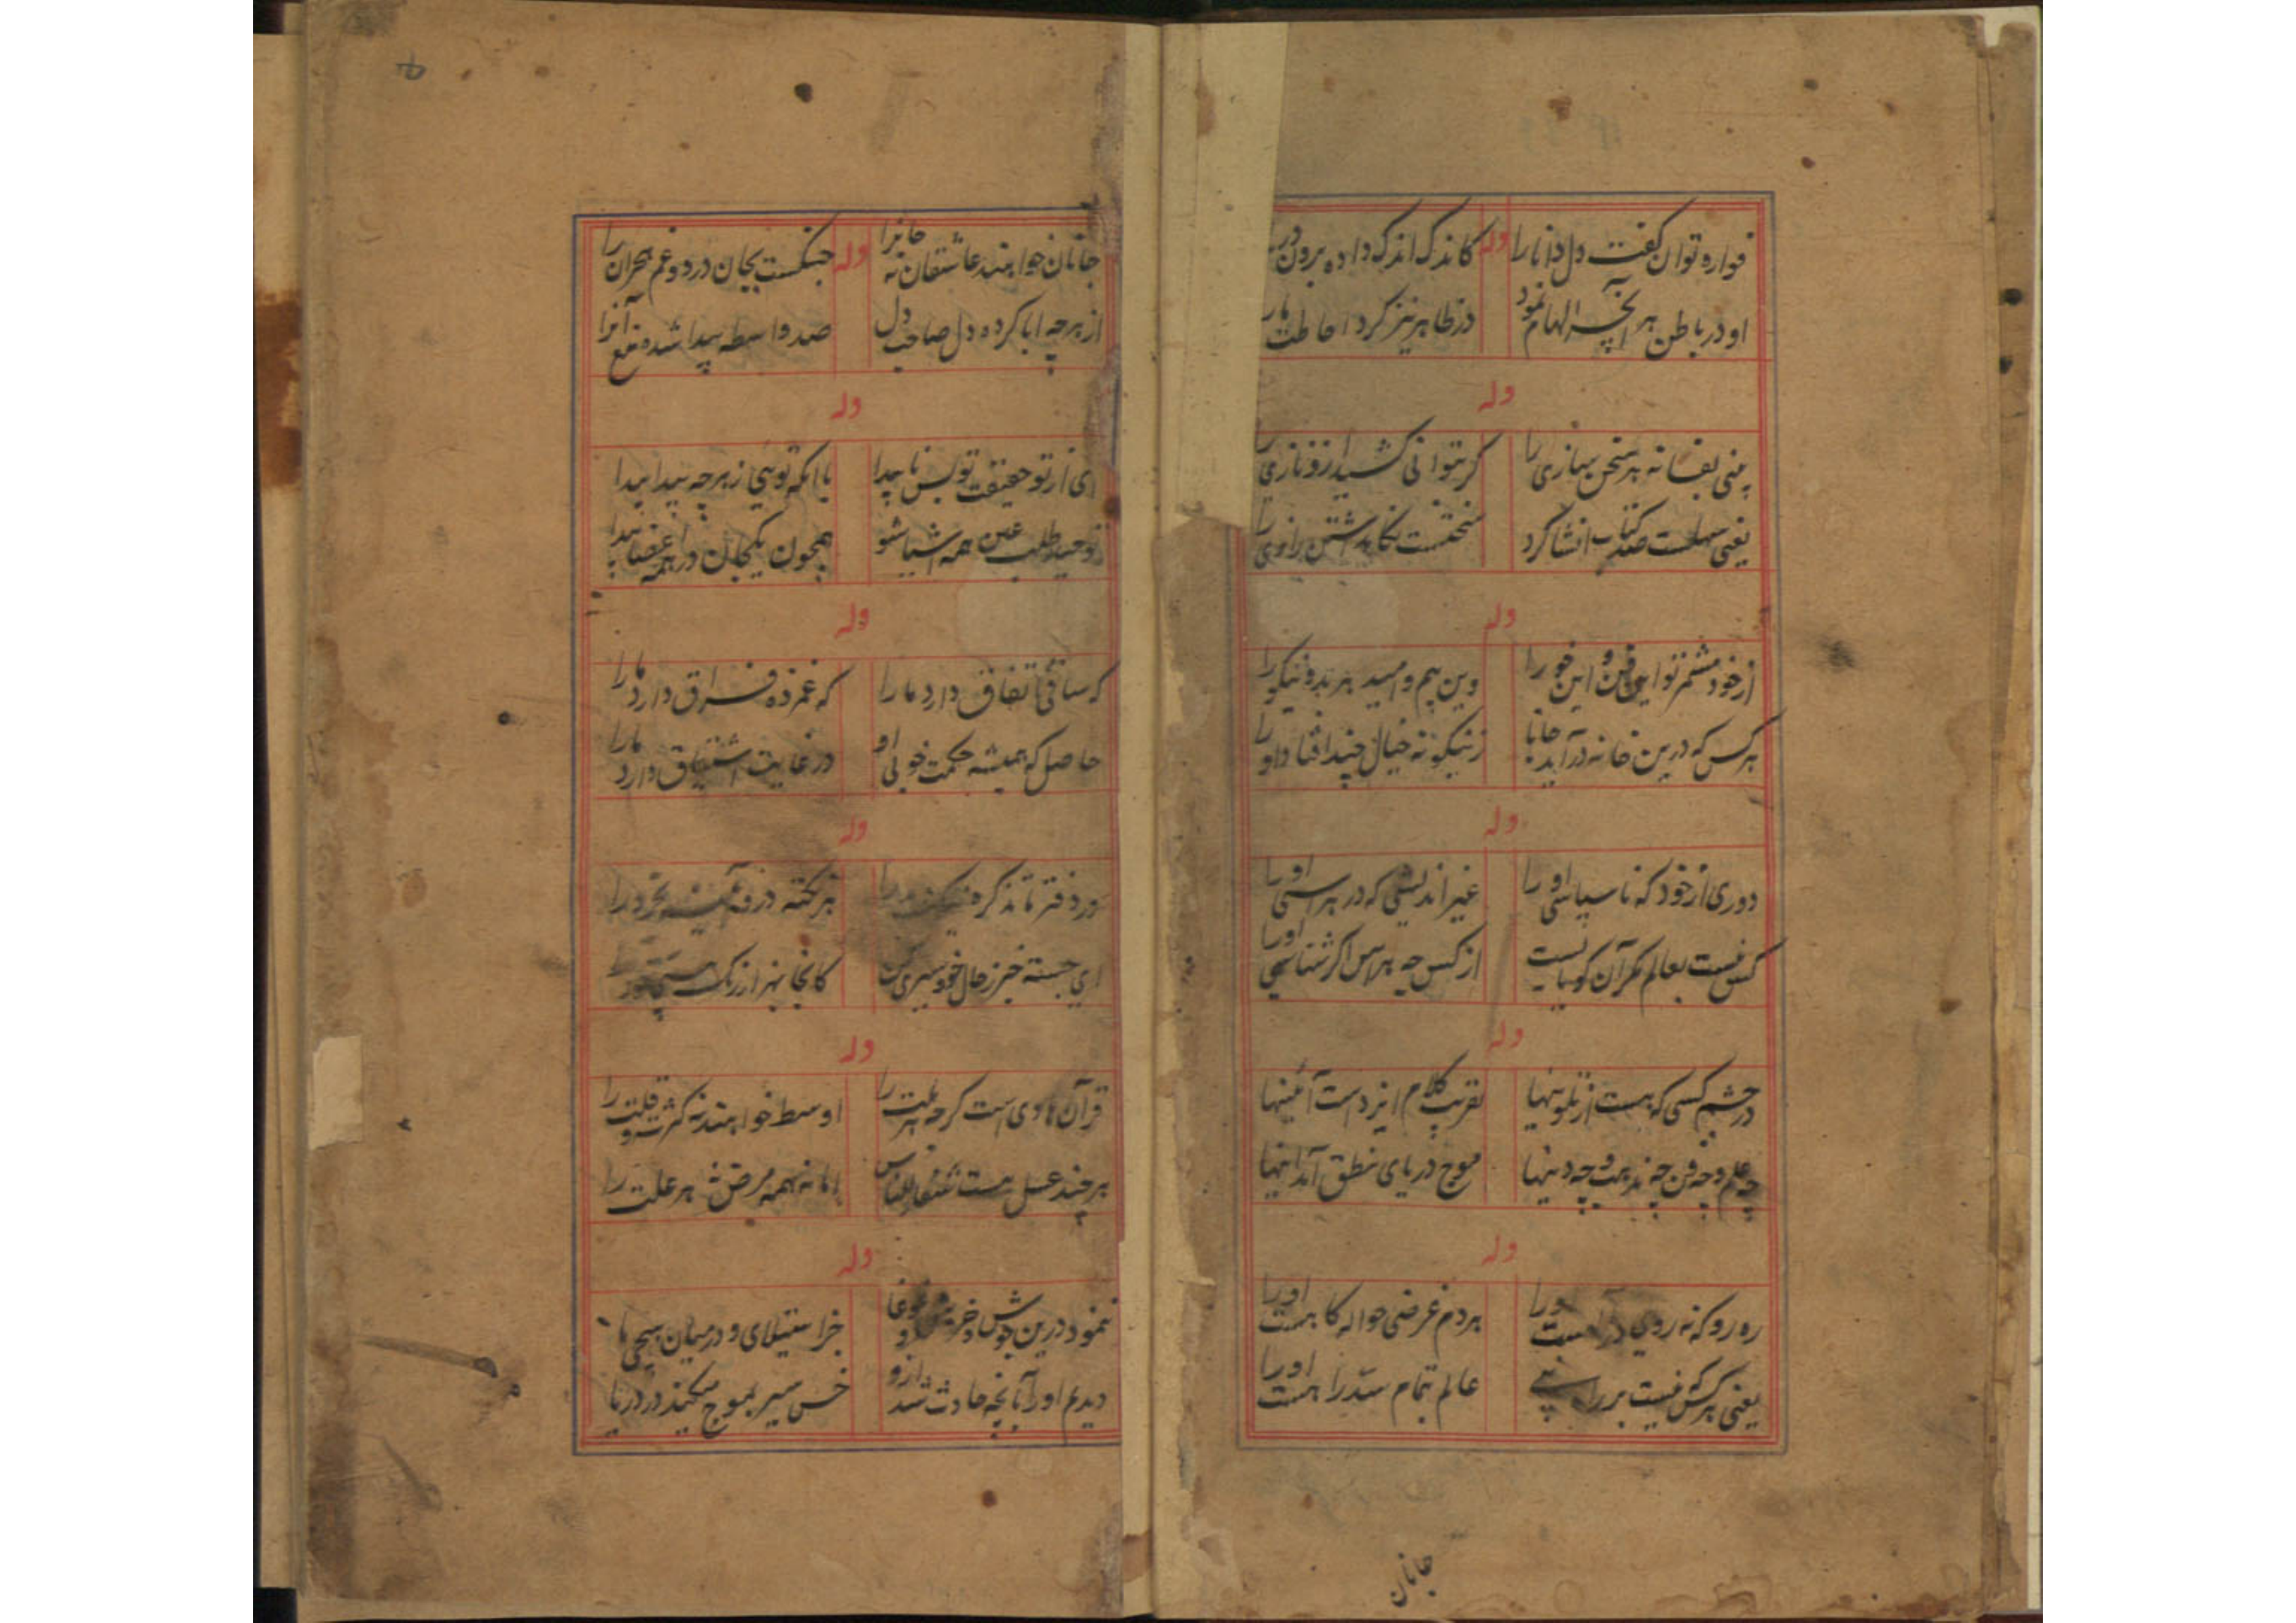 فواره توان گفت دل دانا را
وله
کاندک اندک داده برون
او در باطن هر آنچه الهام نمود
در ظاهر نیز کرد احاطت
وله
نفسانه هر سخن سازی را
گر بتوانی کشید از و نازی را
یعنی سهلست صد کتاب انشا کرد
سختست نگاهداشتن رازی را
وله
از خود مشمر تو این فن و این خو را
وین بیم و امید هر بد و نیکو را
هر کس که درین خانه درآید جانا
زینگونه خیال چند افتاد او را
وله
دوری از خود که ناسپاسی او را
غیر اندیشی که در هراسی او را
کس نیست بعالم مگر آن کو با تست
از کس چه هراس اگر شناسی او را
وله
در چشم کسی که هست از تلوینها
تقریب کلام ایزدست آئینها
چه علم و چه فن چه مذهب و چه دینها
موج دریای نطق آمد اینها
وله
ره رو که نه روی در است او را
هر دم غرضی حواله گاهست او را
یعنی هر کس که نیست بر راه
عالم بتمام سد راهست او را
جانان
جانان خواهند عاشقان نه جانرا
وله
جنگست بجان درد و غم هجران را
از هر چه ابا کرده دل صاحب دل
صد واسطه پیدا شده منع آنرا
وله
ای از تو حقیقت تو بس ناپیدا
با آنکه توئی ز هر چه پیدا پیدا
توحید طلب عین همه اشیا شو
همچون یکجان در همه اعضا پیدا
وله
که ساقی اتفاق دارد ما را
که غمزده فراق دارد ما را
حاصل که همیشه حکمت خوبی او
در غایت اشتیاق دارد ما را
وله
دفتر تا تذکره
هر نکته درو آئینه تجرد را
ای جسته خبر ز حال خود سیری کن
کانجا بهزار رنگ
وله
قرآن هادی است گرچه هر ملت را
اوسط خواهند نه کثرت و قلت را
هر چند عسل هست شفاء للناس
اما نه همه مرض نه هر علت را
وله
ننمود درین جوش و خروش و غوغا
جز استیلای او در میان هیجی‌ها
دیدم او را بآنچه حادث شد ازو
خس سیر بموج میکند در دریا